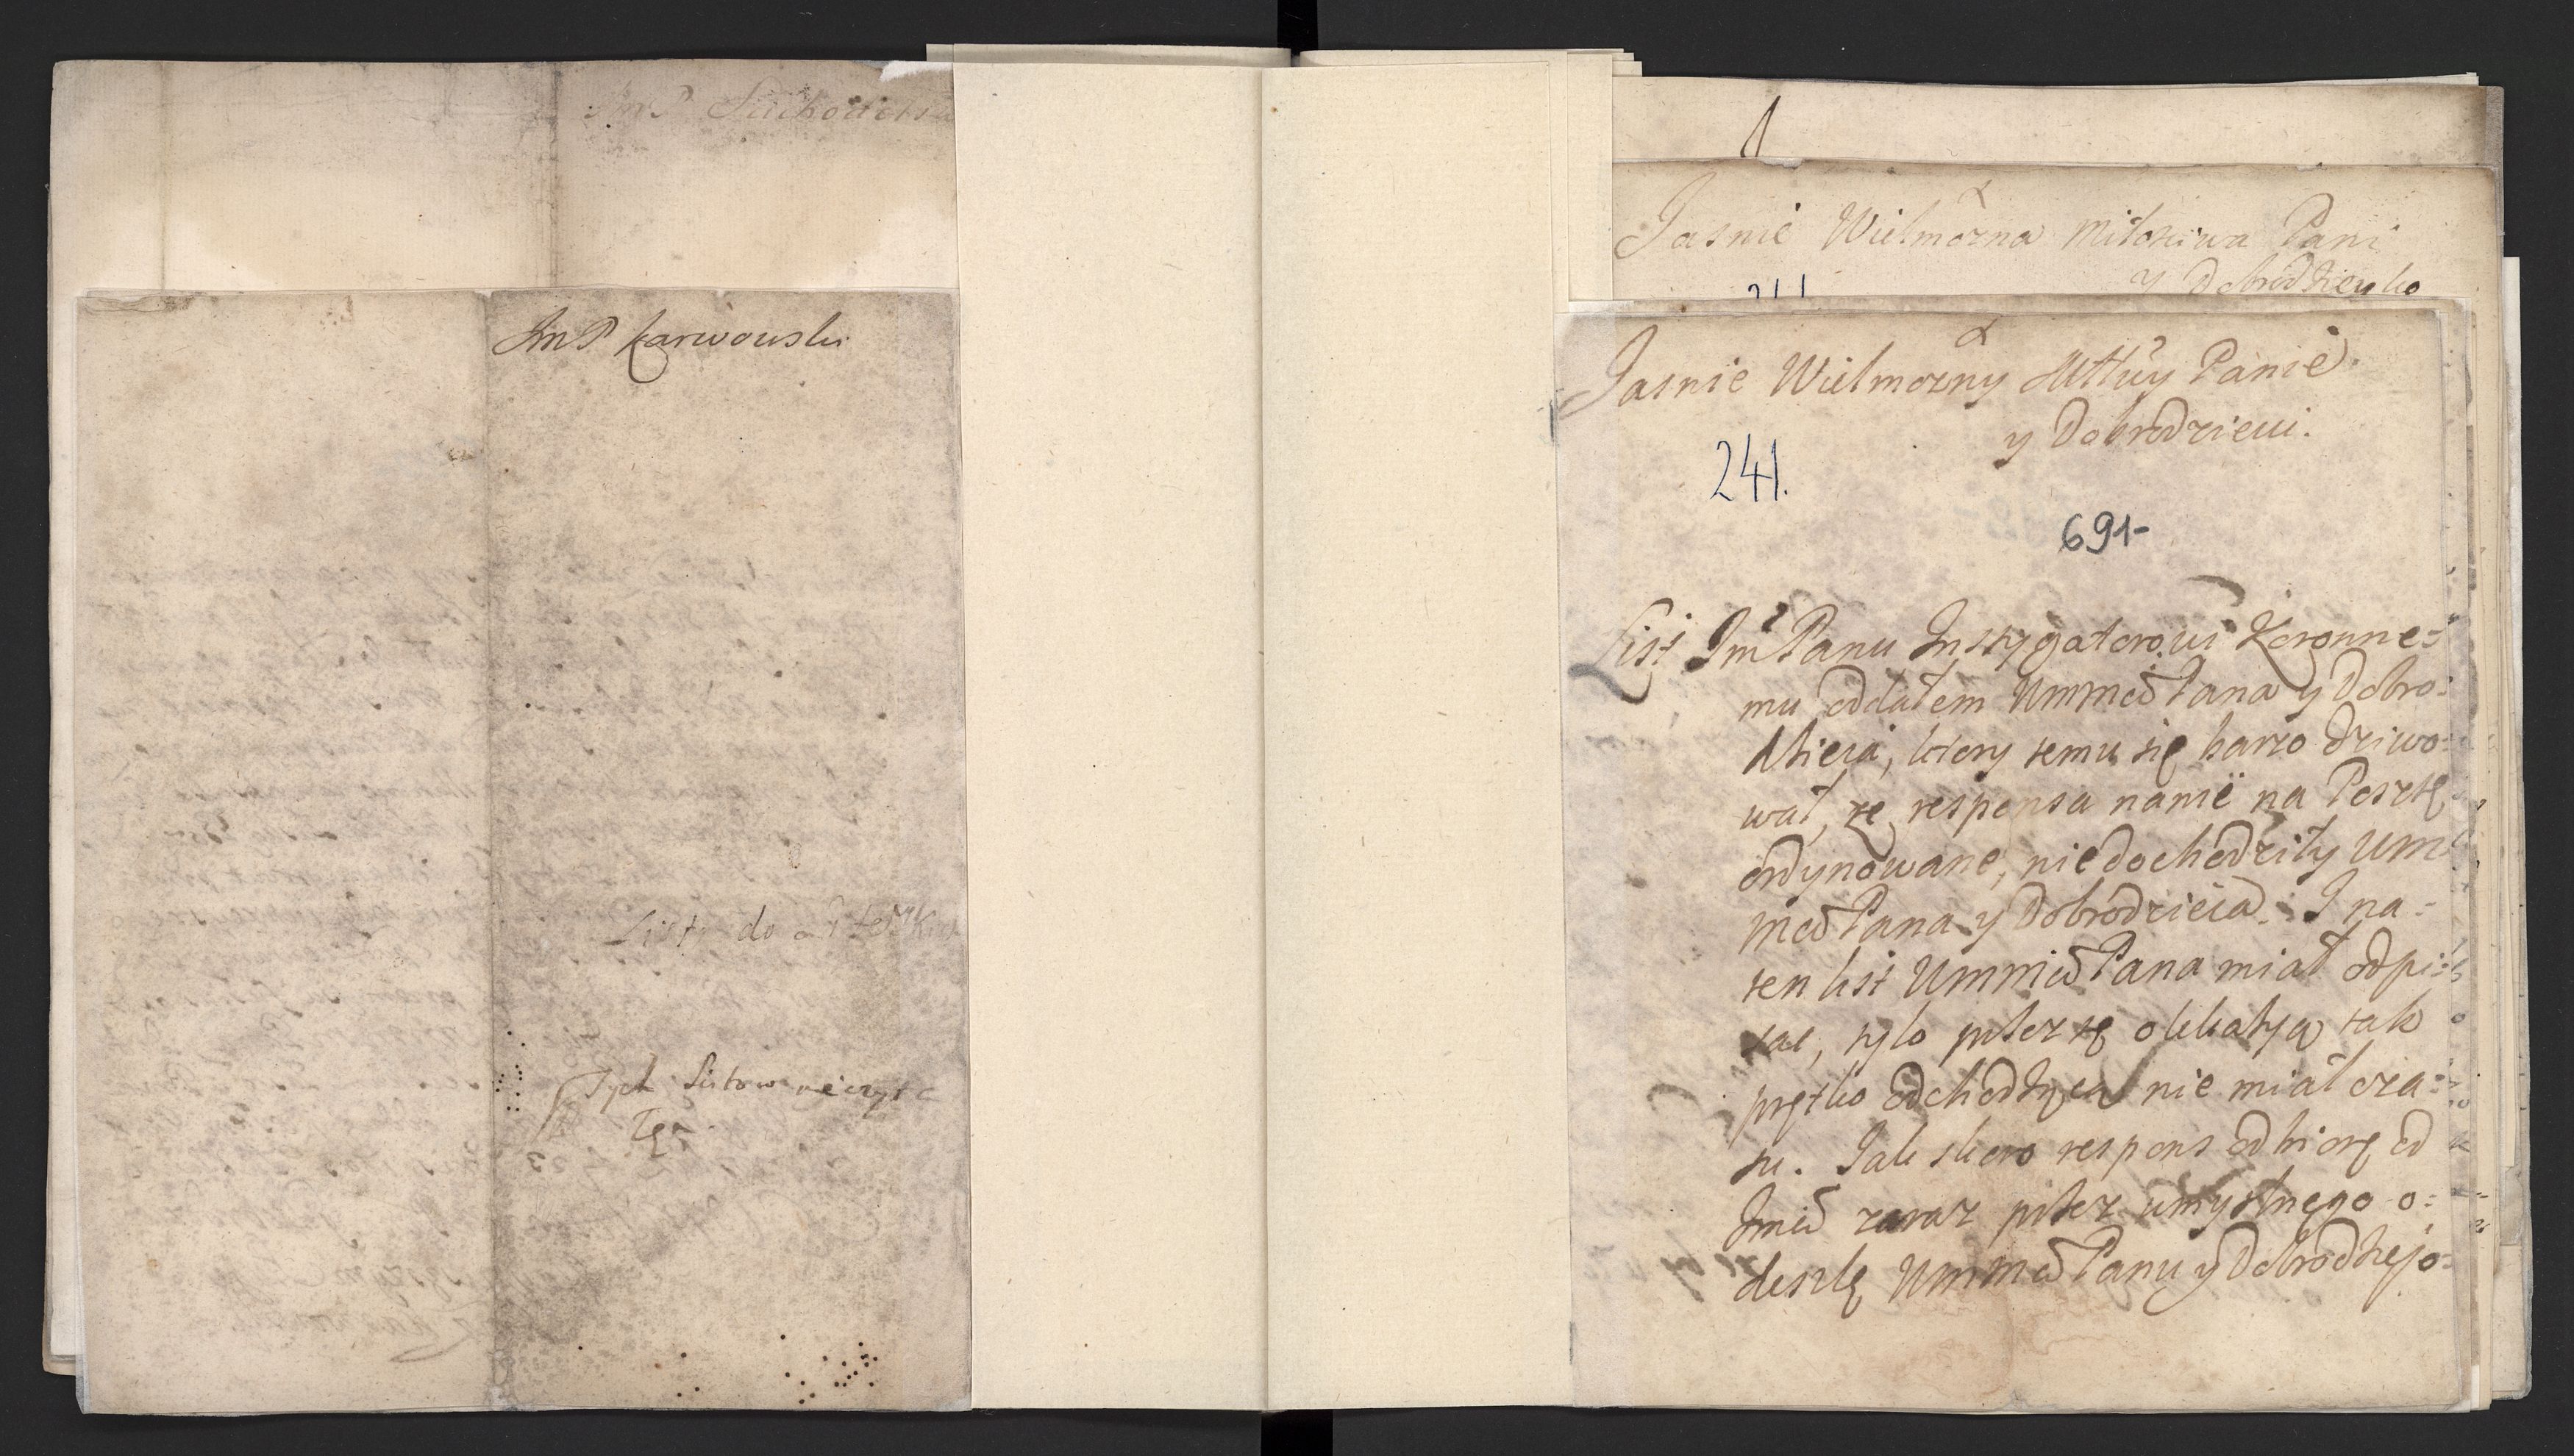 JmP Suchodolsk
JmP Karwowski
Listy do
Tych Listow nie czytać
Jasnie Wielmozna Miłosciwa Pani
y Dobrodzieyko
Jasnie Wielmozny Mttwy Panie
y Dobrodzieiu.
241.
691-
List Jm Panu Instygatorowi Koronne=
mu oddałem Wmmcd Pana y Dobro=
dzieia, ktory temu się barzo dziwo=
wał, ze responsa nanie na Posztę
ordynowane, niedochodziły Wm
mcd Pana y Dobrodzieia. I na=
ten list Wmmcd Pana miał odpi=
sac, tylo przez tę okkazyą tak
prętko odchodzącą nie miał cza=
su. Jak skoro respons odbiorę od
Jmcd zaraz przez umyslnego o=
deszlę Wmmcd Panu y Dobrodzejo=